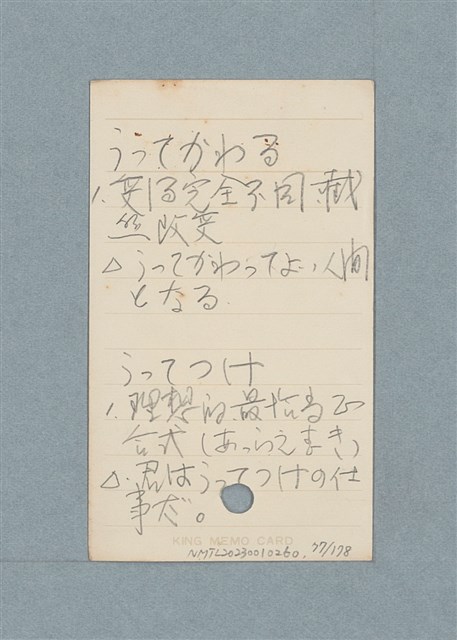 うってかわる
1. 変得完全不同、截
然改変
△ うってかわってよい人間
となる
うってつけ
1. 理想的、最恰当、正
合式(あつらえむき)
△. 君はうってつけの仕
事だ。
KING MEMO CARD
NMTL20230010260, 77/178